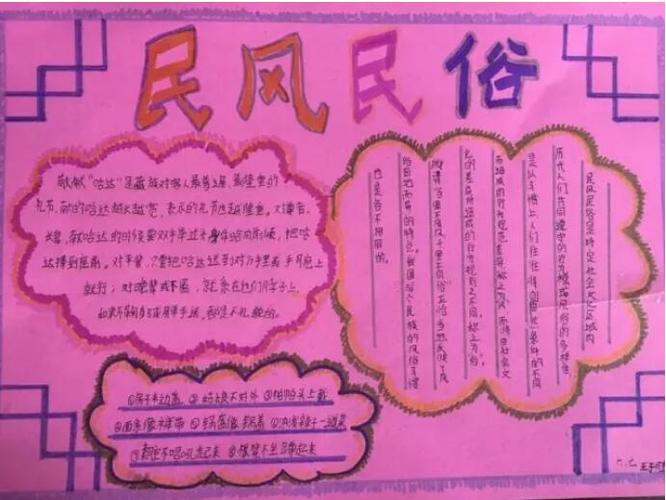 民风民俗
敬献"哈达"是藏族对客人最普遍、最隆重的
礼节,献的哈达越长越宽,表示的礼节也越隆重。对尊者、
长辈,献哈达的时候要双手举过头,身体略向前倾,把哈
达捧到座前。对平辈,只要把哈达送到对方手里或手腕上
就行;对晚辈或下属,就系在他们脖子上。
如果不鞠躬或用单手送,都是不礼貌的。
民风民俗是特定社会文化区域内
历代人们共同遵守的行为模式或规范。风俗的多样性,
是以习惯上,人们往往将由自然条件的不同
而造成的行为规范差异,称之为"风";而将由社会文
化的差异所造成的行为规则之不同,称之为"俗"。
所谓"百里不同风,千里不同俗"正恰当地反映了风
俗因地而异的特点。我国各个民族的风俗习惯
也是各不相同的。
①房子半边盖 ②姑娘不对外 ③帕帕头上戴
④面条像裤带 ⑤锅盔像锅盖 ⑥油泼辣子一道菜
⑦秦腔不唱吼起来 ⑧板凳不坐蹲起来